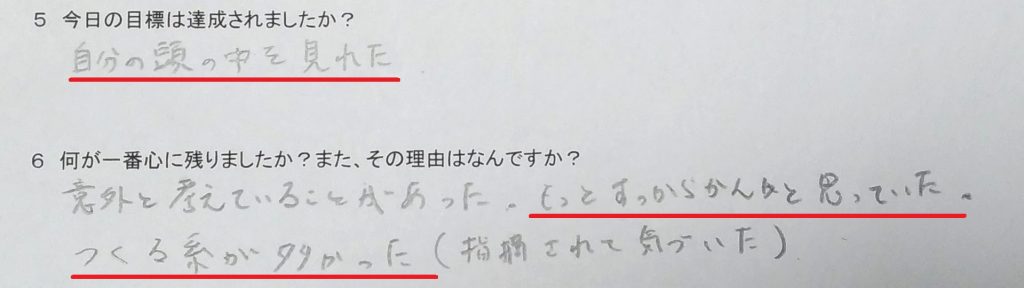 5 今日の目標は達成されましたか？
自分の頭の中を見れた
6 何が一番心に残りましたか？また、その理由はなんですか？
意外と考えていることがあった。もっとすっからかんかと思っていた。
つくる系が多かった（指摘されて気づいた）